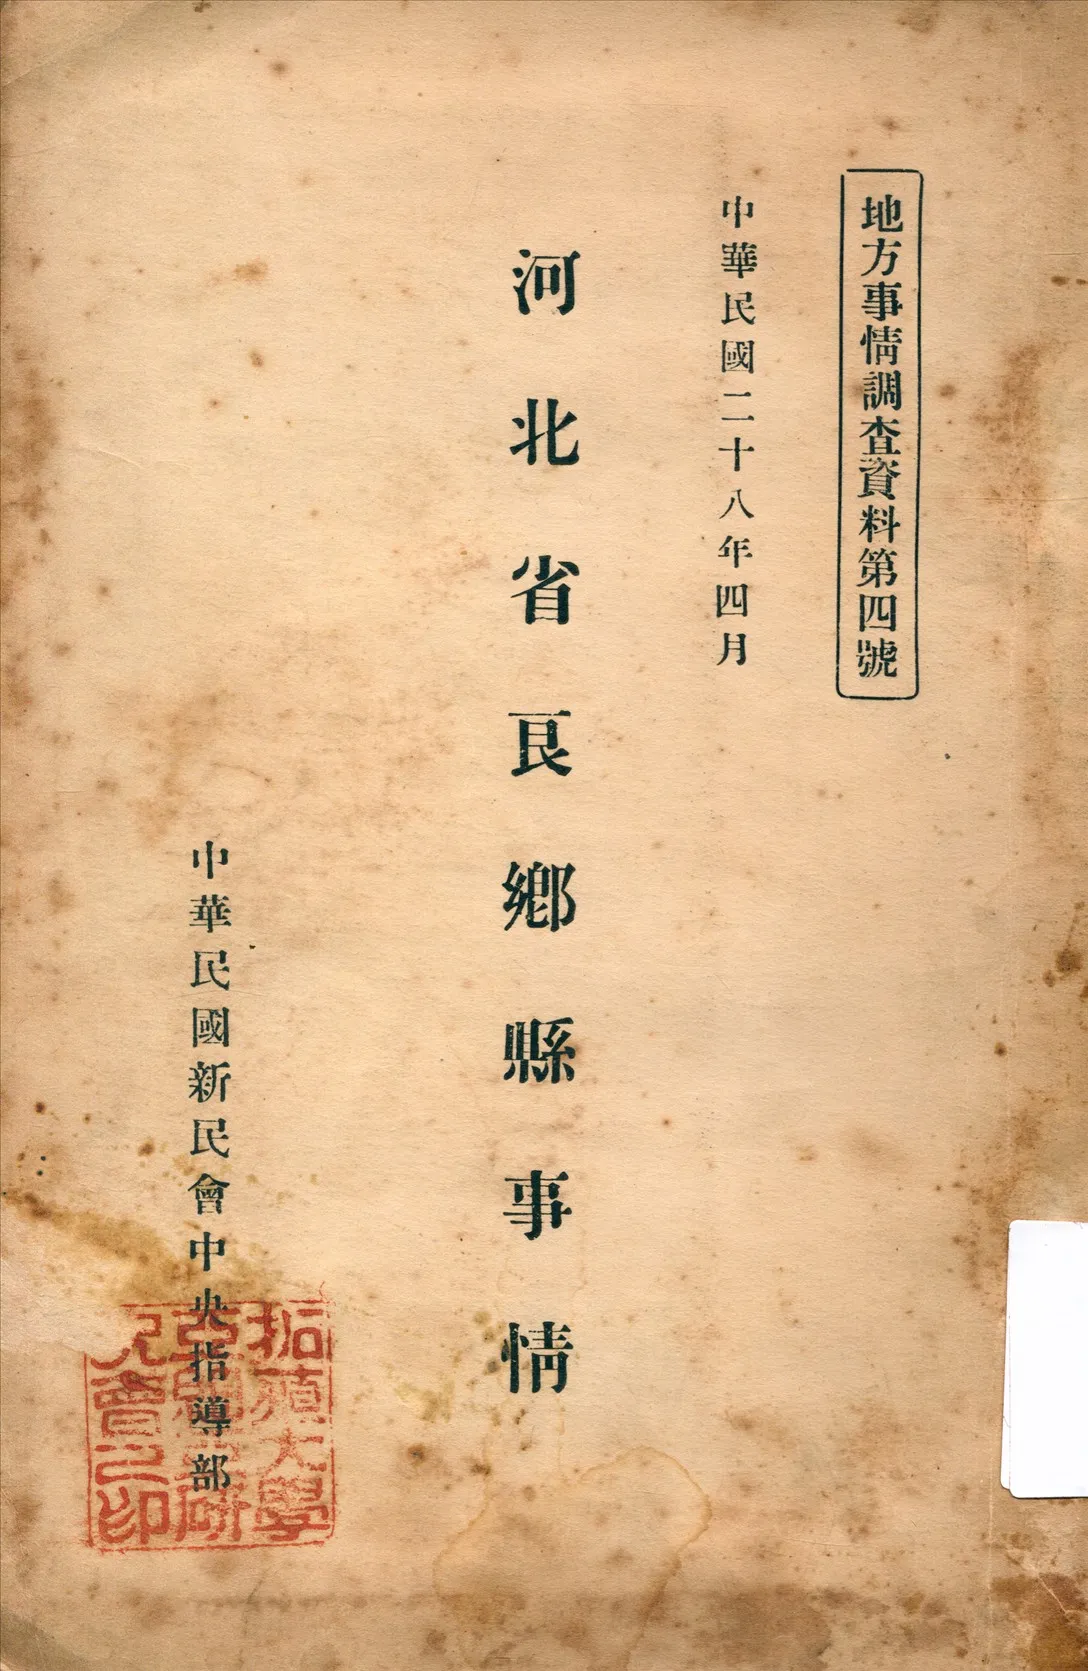 地方事情調查資料第四號
中華民國二十八年四月
河北省良鄉縣事情
中華民國新民會中央指導部
拓殖大學
究會之印